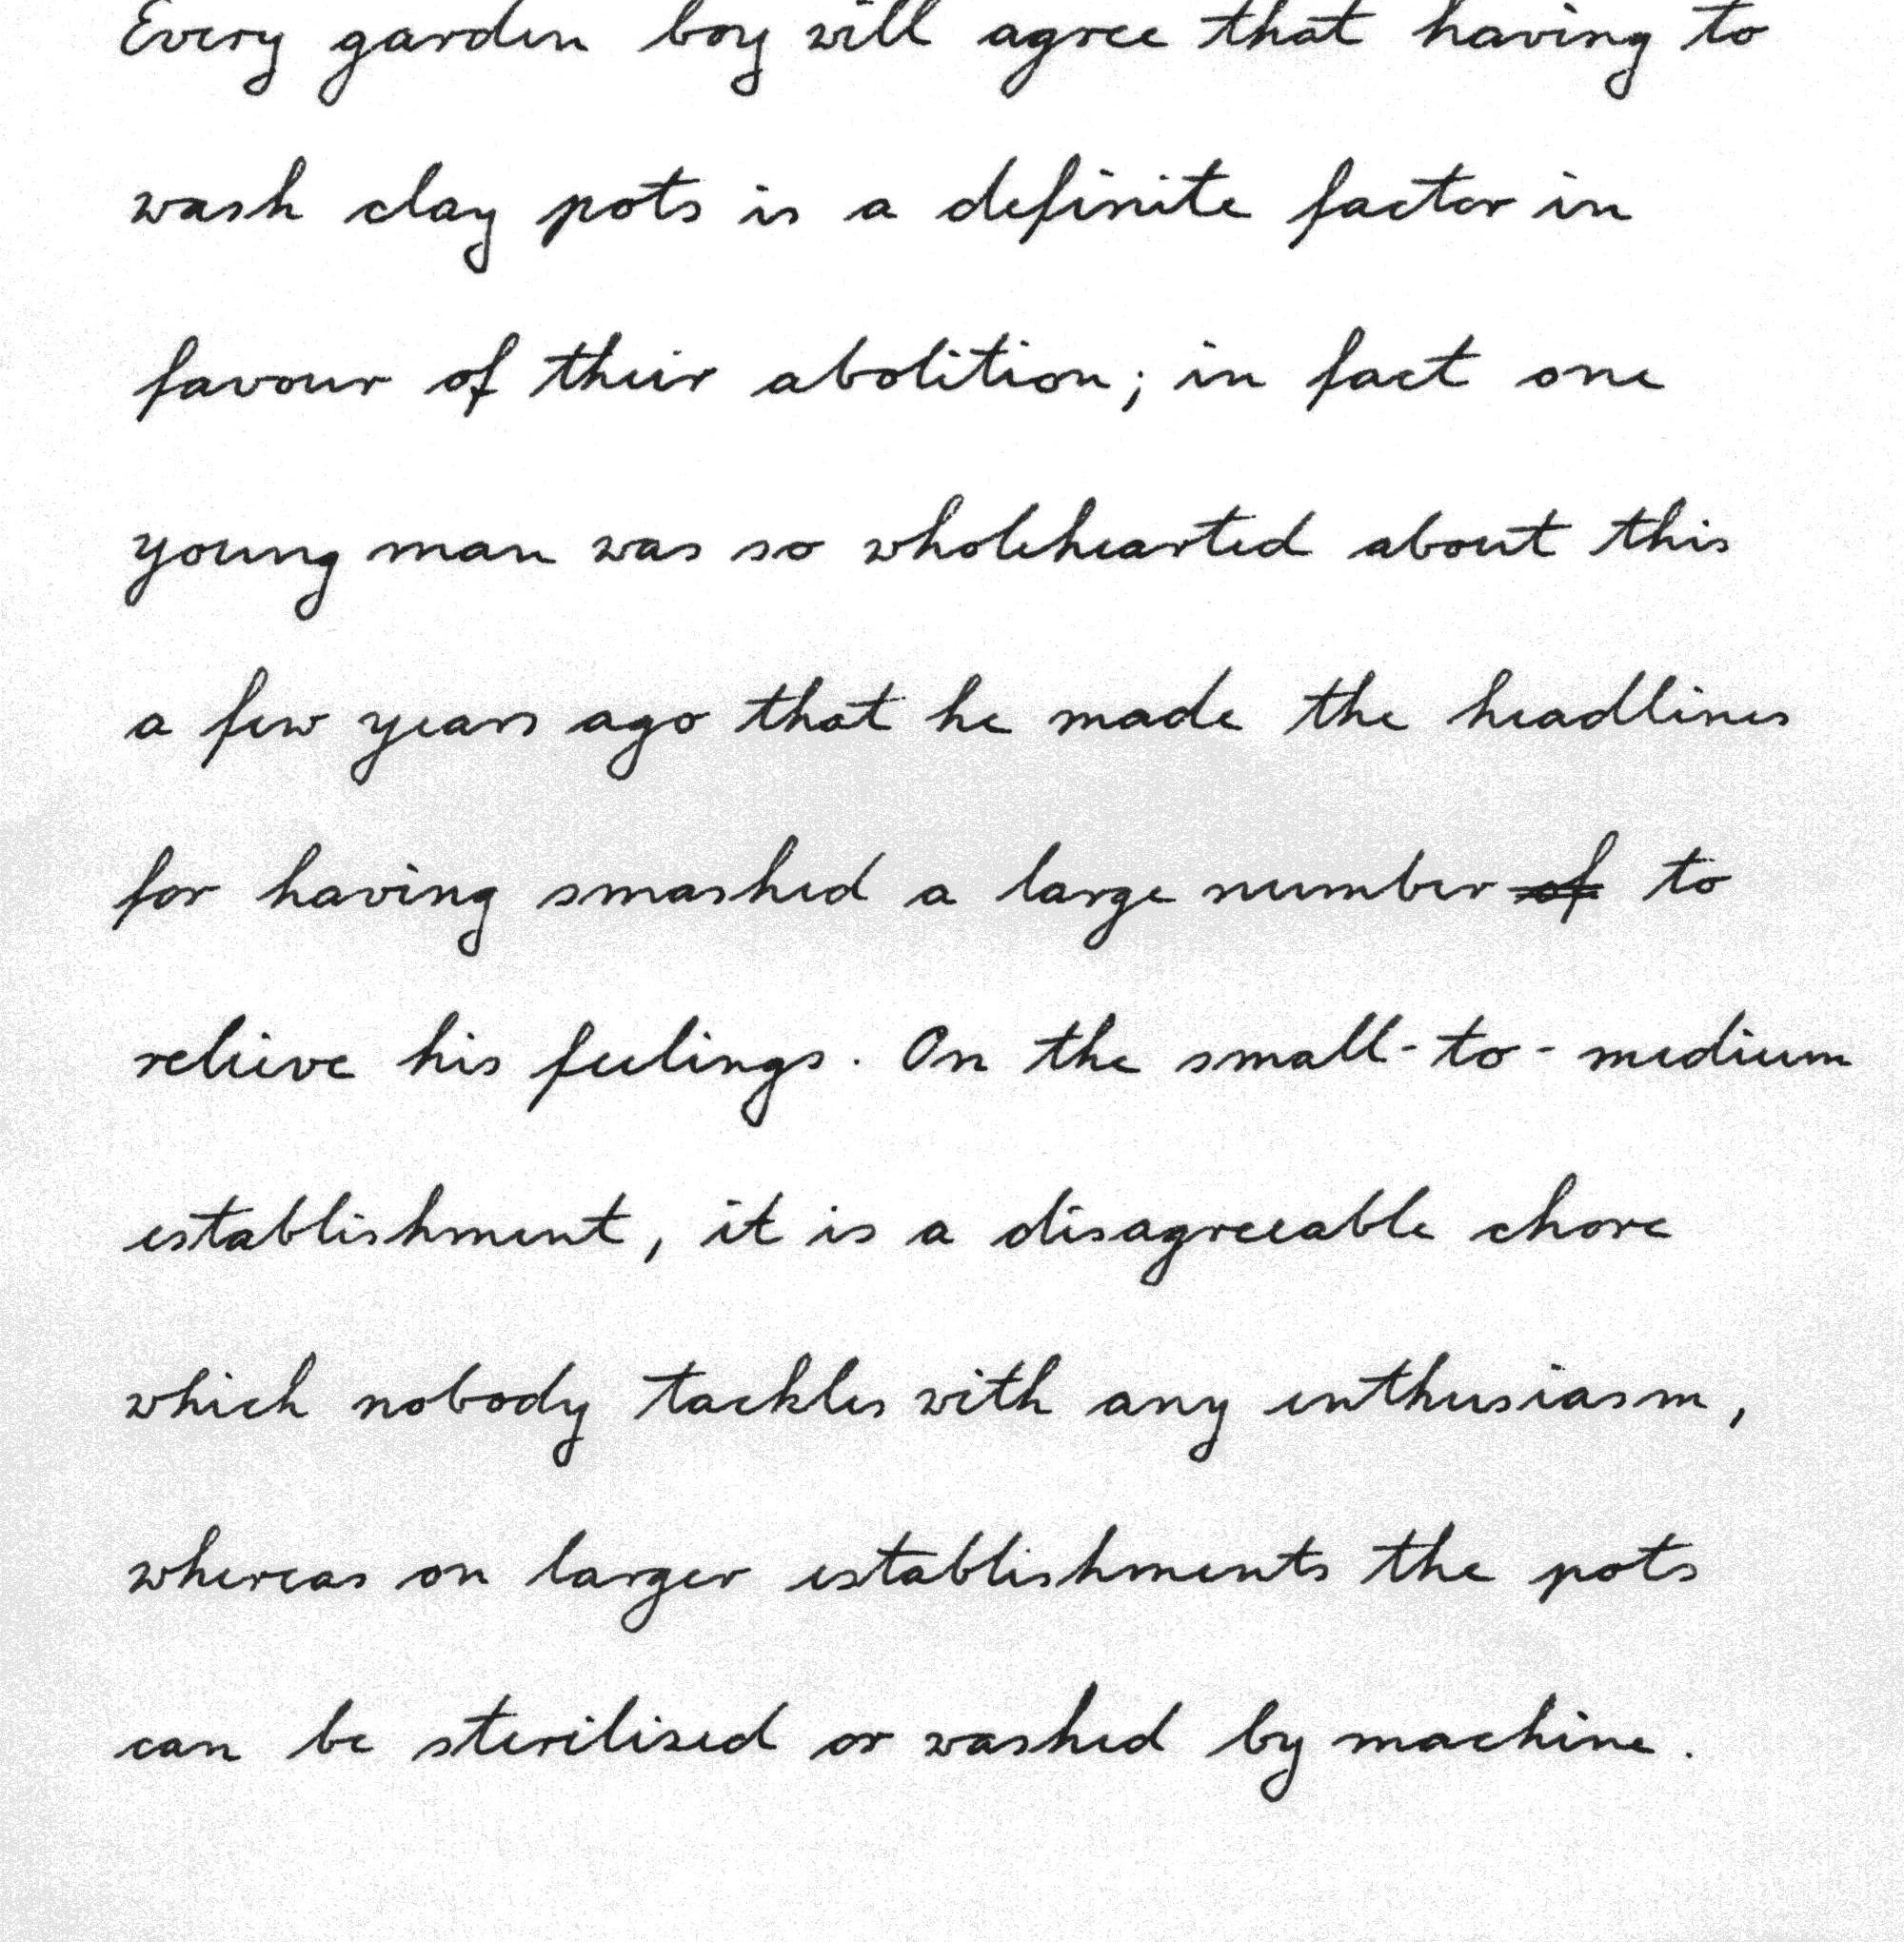 Every garden boy will agree that having to
wash clay pots is a definite factor in
favour of their abolition; in fact one
young man was so wholehearted about this
a few years ago that he made the headlines
for having smashed a large number ~~of~~ to
relieve his feelings. On the small-to-medium
establishment, it is a disagreeable chore
which nobody tackles with any enthusiasm,
whereas on larger establishments the pots
can be sterilised or washed by machine.